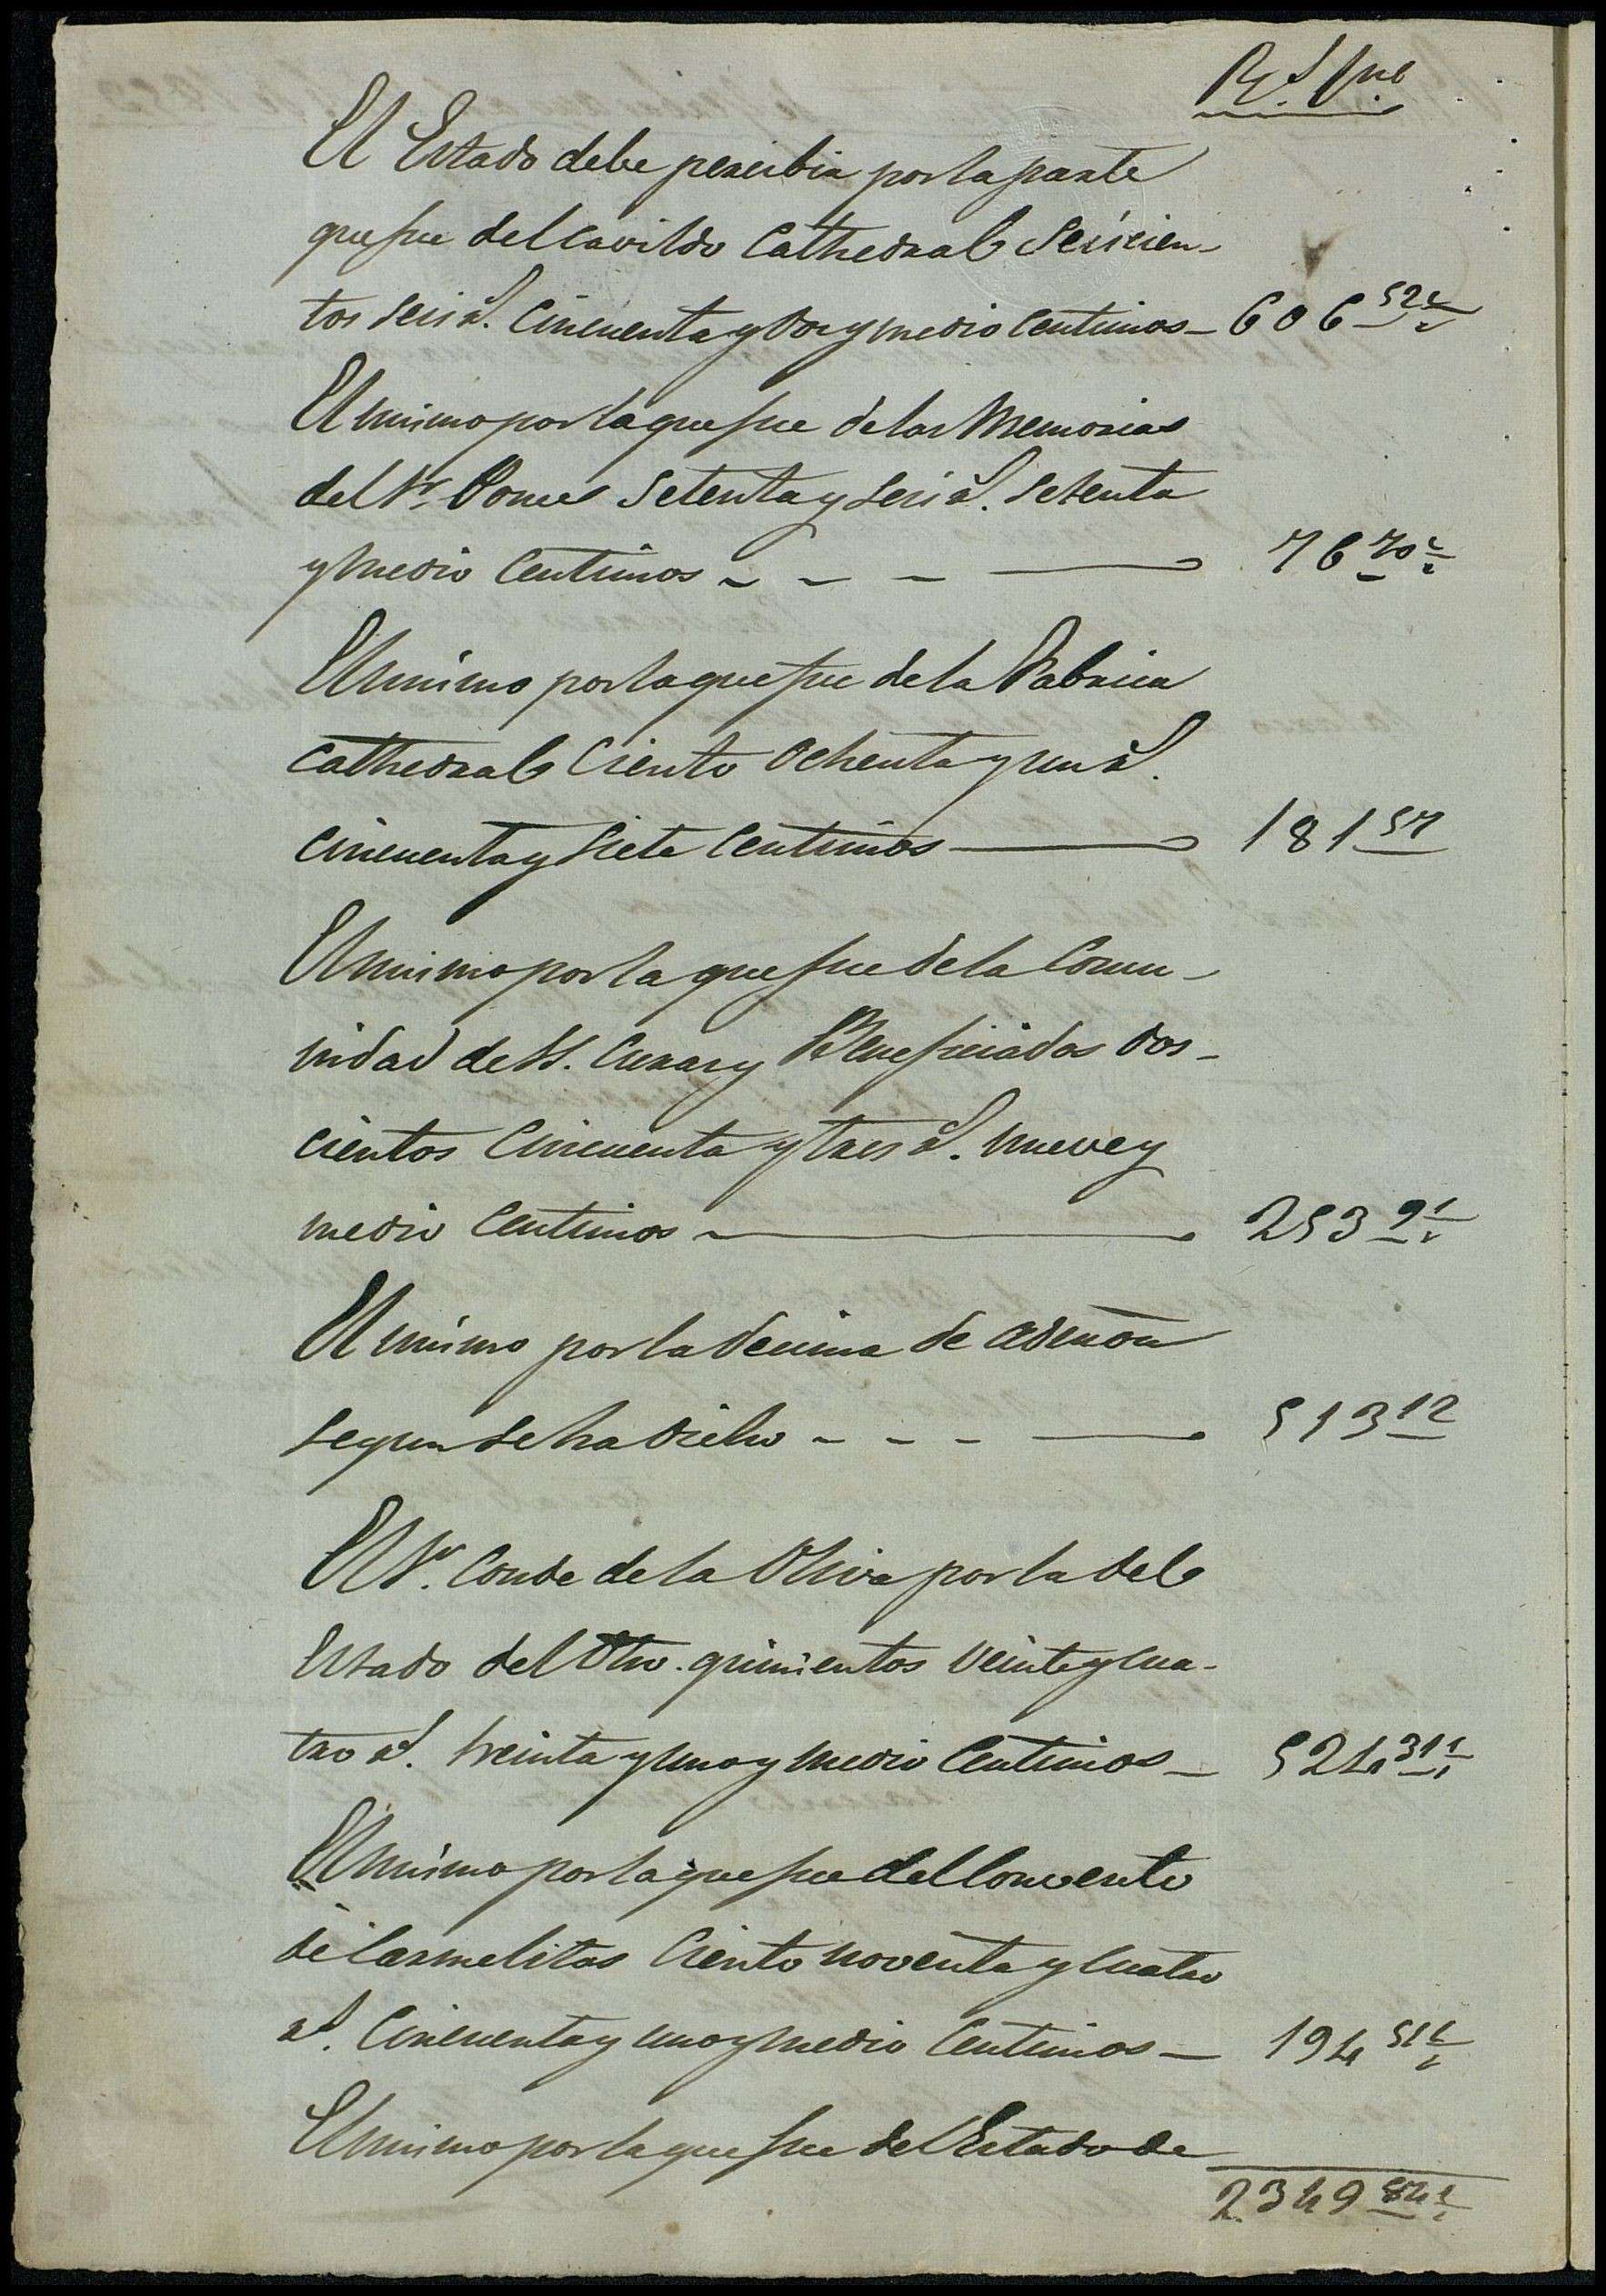 Rs. Cns.
El Estado debe percibir por la parte
que fue del Cavildo Cathedral Seiscien-
tos seis rs. cincuenta y dos y medio centimos — 606 52 ½
El mismo por la que fue de las Memorias
del Sr. Ponce setenta y seis rs. setenta
y medio centimos - - - — 76 70 ½
El mismo por la que fue de la Fabrica
Cathedral Ciento ochenta y un rs.
cincuenta y siete centimos — 181 57
El mismo por la que fue de la Comu-
nidad de SS. Curas y Beneficiados dos-
cientos cincuenta y tres rs. nueve y
medio centimos — 253 9 ½
El mismo por la decima de admon
segun se ha dicho - - - — 513 12
El Sr. Conde de la Oliva por la del
Estado del Otro. quinientos veinte y cua-
tro rs. treinta y uno y medio centimos — 524 31 ½
El mismo por la que fue del Convento
de Carmelitas Ciento noventa y cuatro
rs. cincuenta y uno y medio centimos — 194 51 ½
El mismo por la que fue del Estado de
2349 84 ½